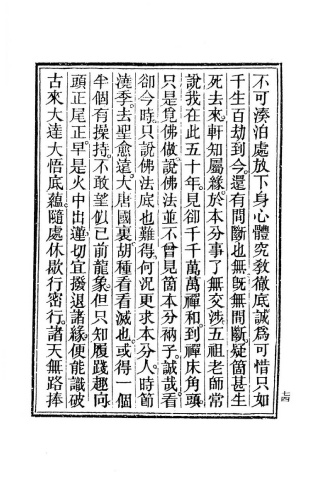 不可湊泊處放下身心體究教徹底誠爲可惜只如
千生百劫到今還有間斷也無旣無間斷疑箇甚生
死去來軒知屬緣於本分事了無交涉五祖老師常
說我在此五十年見卻千千萬萬禪和到禪床角頭
只是覓佛做說佛法並不曾見箇本分衲子誠哉看
卻今時只說佛法底也難得何況更求本分人時節
澆季去聖愈遠大唐國裏胡種看看滅也或得一個
半個有操持不敢望似已前龍象但只知履踐趣向
頭正尾正早是火中出蓮切宜撥退諸緣便能識破
古來大達大悟底蘊隨處休歇行密行諸天無路捧
七四